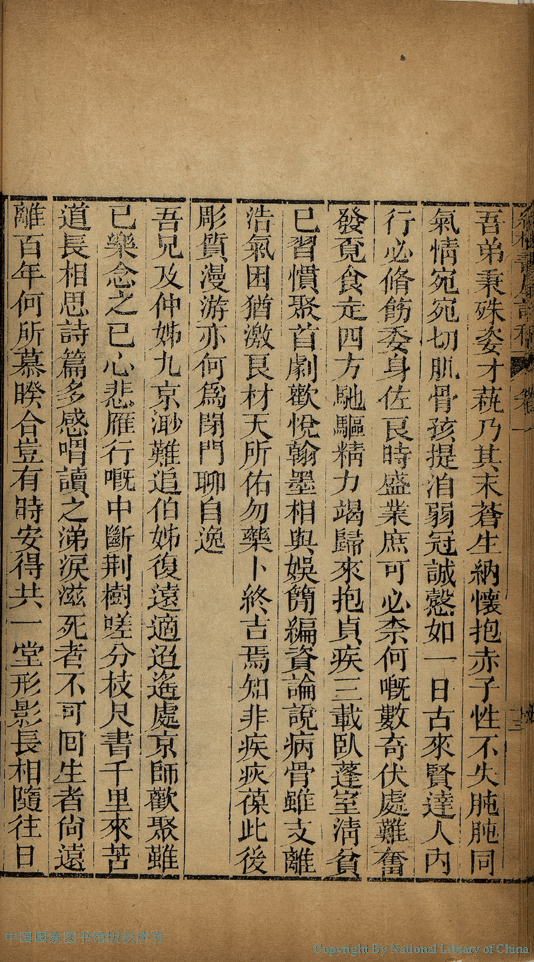 吾弟秉殊姿才蓺乃其末蒼生納懷抱赤子性不失肫肫同
氣情宛宛切肌骨孩提洎弱冠誠慤如一日古來賢達人內
行必脩飭委身佐良時盛業庶可必柰何嘅數奇伏處難奮
發覓食走四方馳驅精力竭歸來抱貞疾三載臥蓬室淸貧
已習慣聚首劇歡悅翰墨相與娛簡編資論說病骨雖支離
浩氣困猶激良材天所佑勿藥卜終吉焉知非疾疢葆此後
彫質漫游亦何爲閉門聊自逸
吾兄及仲姊九京渺難追伯姊復遠適迢遙處京師歡聚雖
已樂念之已心悲雁行嘅中斷荆樹嗟分枝尺書千里來苦
道長相思詩篇多感喟讀之涕淚滋死者不可回生者尙遠
離百年何所慕暌合豈有時安得共一堂形影長相隨往日
Copyright By National Library of China